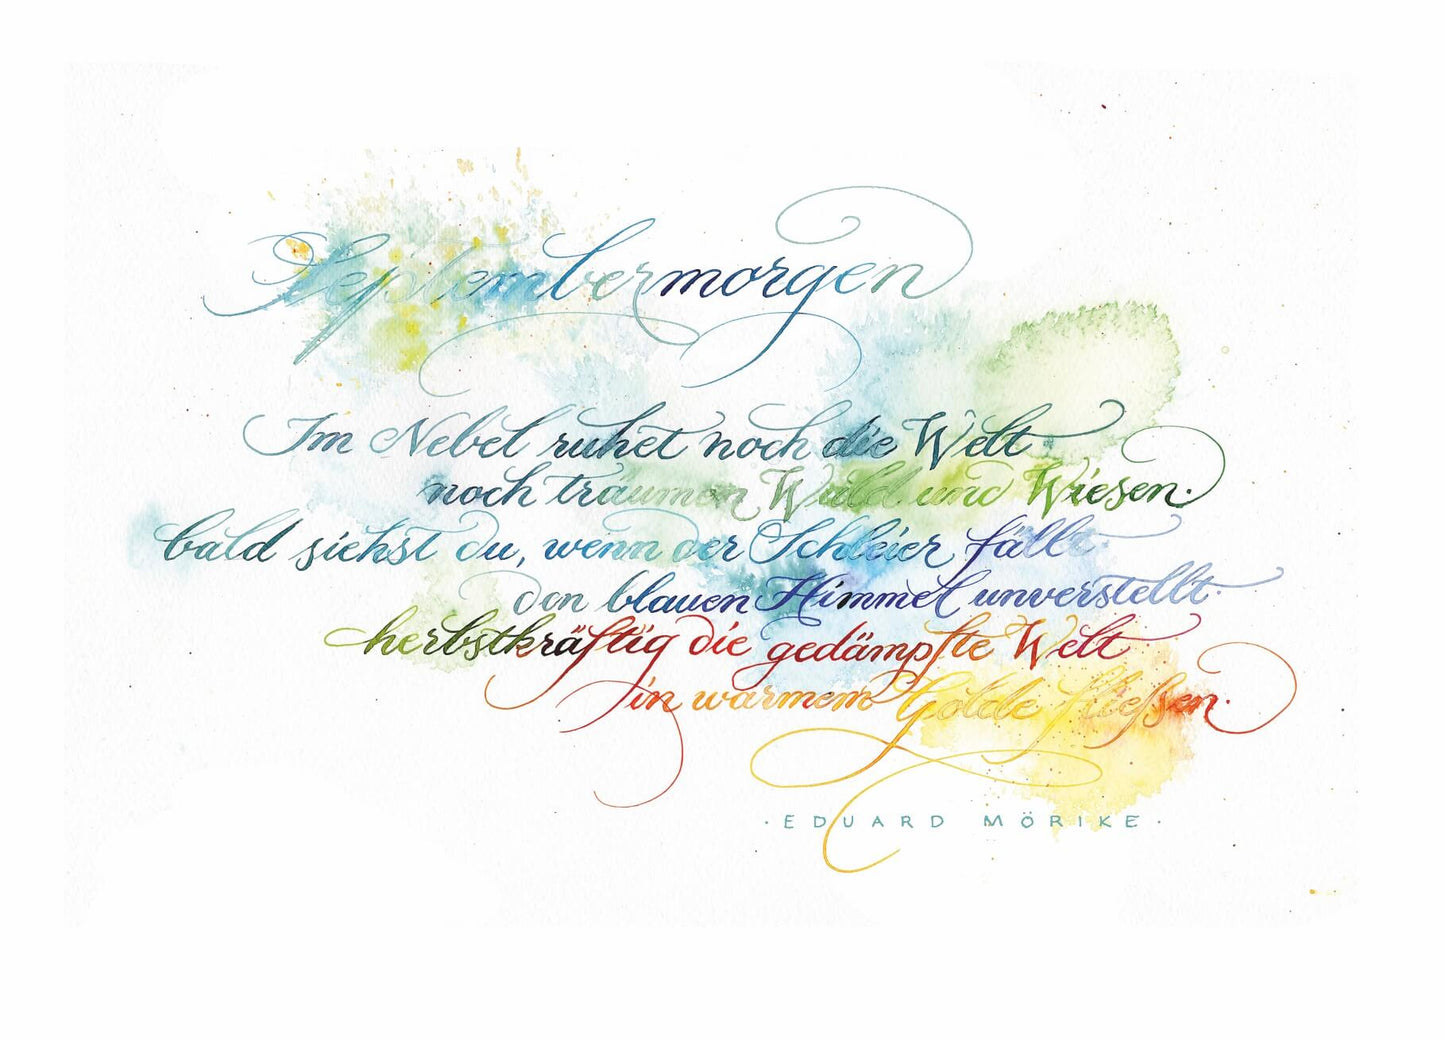 Septembermorgen
Im Nebel ruhet noch die Welt
noch träumen Wald und Wiesen.
bald siehst du, wenn der Schleier fällt.
den blauen Himmel unverstellt.
herbstkräftig die gedämpfte Welt
in warmem Golde fließen.
· EDUARD MÖRIKE ·